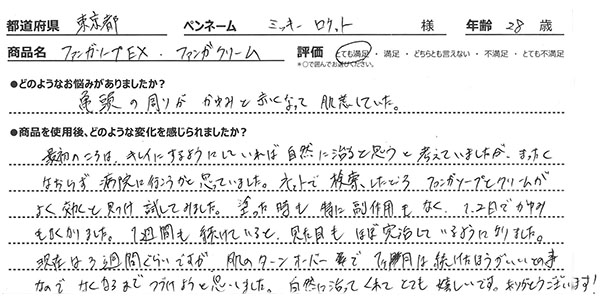 都道府県 東京都 ペンネーム ミッキーロケット 様 年齢 28 歳
商品名 ファンガソープEX・ファンガクリーム 評価 とても満足・満足・どちらとも言えない・不満足・とても不満足
*○で囲んでお選びください。
●どのようなお悩みがありましたか?
亀頭の周りが かゆみと赤くなって 肌荒していた。
●商品を使用後、どのような変化を感じられましたか?
最初のころは、キレイにするようにしていれば自然に治ると思うと考えていましたが、まったく
なおらず 病院に行こうかと思っていました。ネットで検索したところ ファンガソープとクリームが
よく効くと見つけ試してみました。塗った時も 特に副作用もなく、1、2日でかゆみ
もなくなりました。1週間も続けていると、見た目も ほぼ完治しているようになりました。
現在は3週間ぐらいですが 肌のターンオーバー で 1ヶ月は続けたほうがいいとの事
なので なくなるまで つづけようと思いました。自然に治ってくれて とても嬉しいです。ありがとうございます!